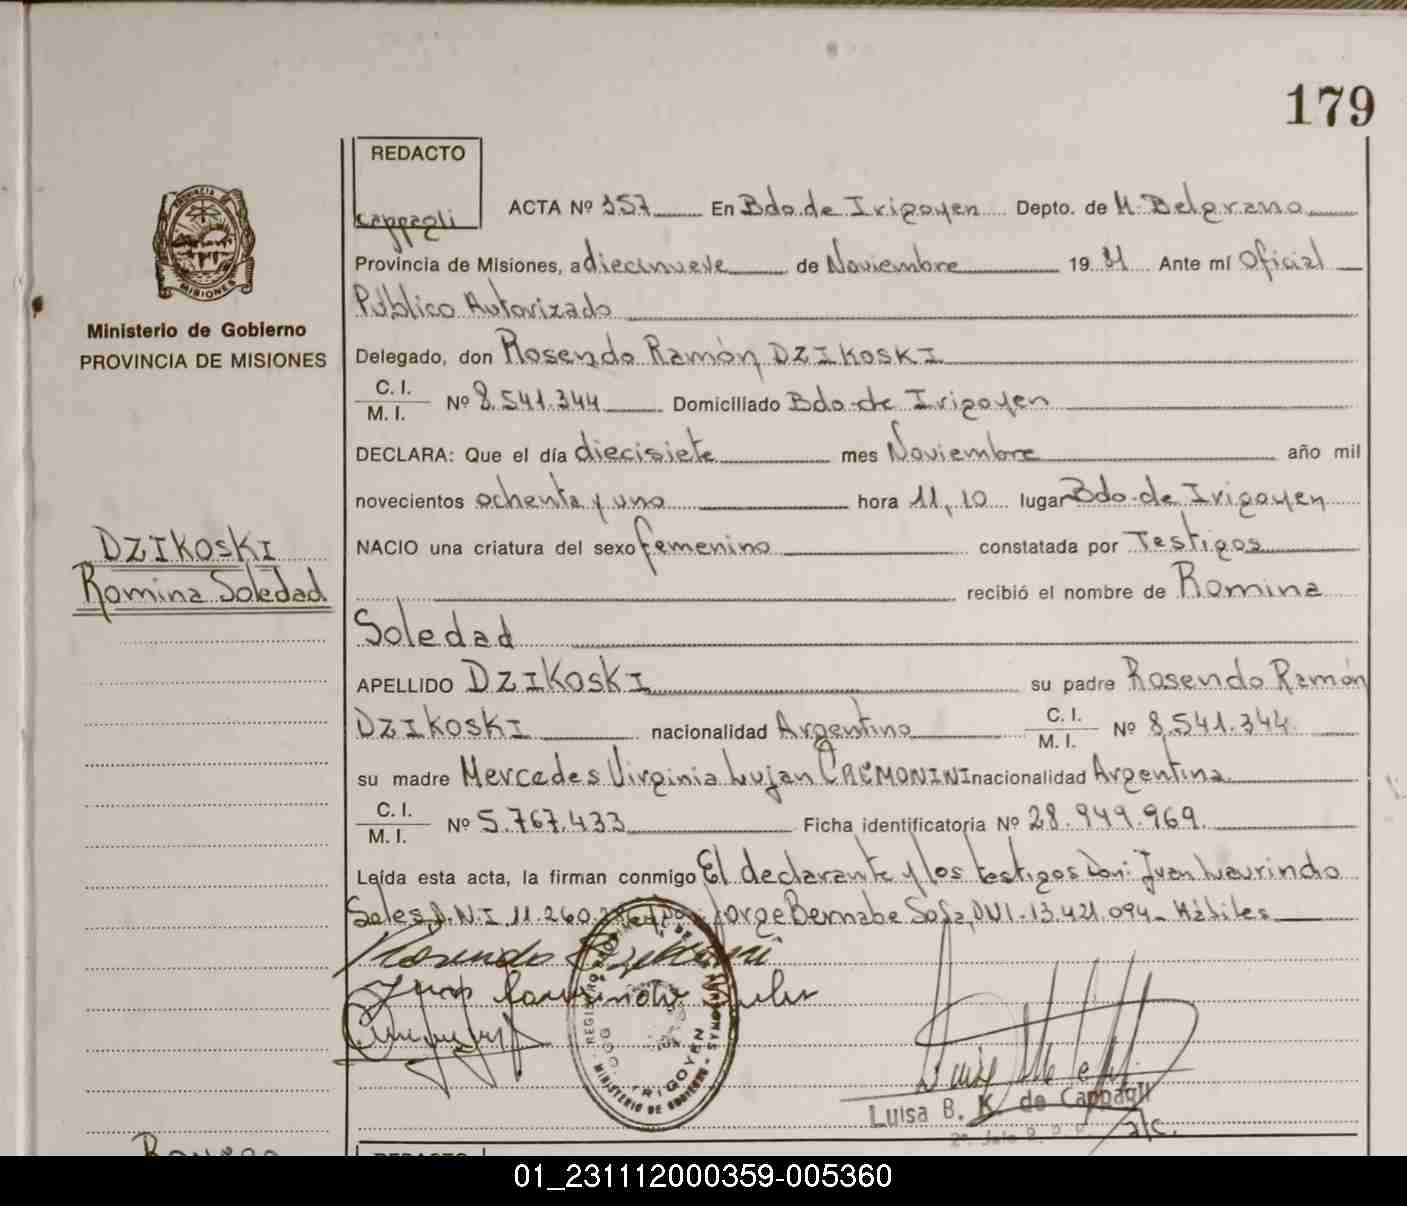 179
REDACTO
Cappagli
ACTA Nº 357 En Bdo. de Irigoyen Depto. de M. Belgrano
Provincia de Misiones, a diecinueve de Noviembre 19 81 Ante mí Oficial
Público Autorizado
Delegado, don Rosendo Ramón DZIKOSKI
C. I.
M. I. Nº 8.541.344 Domiciliado Bdo. de Irigoyen
DECLARA: Que el día diecisiete mes Noviembre año mil
novecientos ochenta y uno hora 11,10 lugar Bdo. de Irigoyen
NACIO una criatura del sexo femenino constatada por Testigos
recibió el nombre de Romina
Soledad
APELLIDO DZIKOSKI su padre Rosendo Ramón
DZIKOSKI nacionalidad Argentino C. I. M. I. Nº 8.541.344
su madre Mercedes Virginia Lujan CREMONINI nacionalidad Argentina
C. I.
M. I. Nº 5.767.433 Ficha identificatoria Nº 28.949.969
Leída esta acta, la firman conmigo El declarante y los testigos Don: Juan Laurindo
Sales, D.N.I 11.260. Jorge Bernabe Sosa, DNI-13.421.094- Hábiles
PROVINCIA DE
MISIONES
Ministerio de Gobierno
PROVINCIA DE MISIONES
DZIKOSKI
Romina Soledad
REGISTRO PROVINCIAL DE LAS PERSONAS
BDO. IRIGOYEN
MINISTERIO DE GOBIERNO
Luisa B. K. de Cappagli
a/c.
REDACTO
01_231112000359-005360